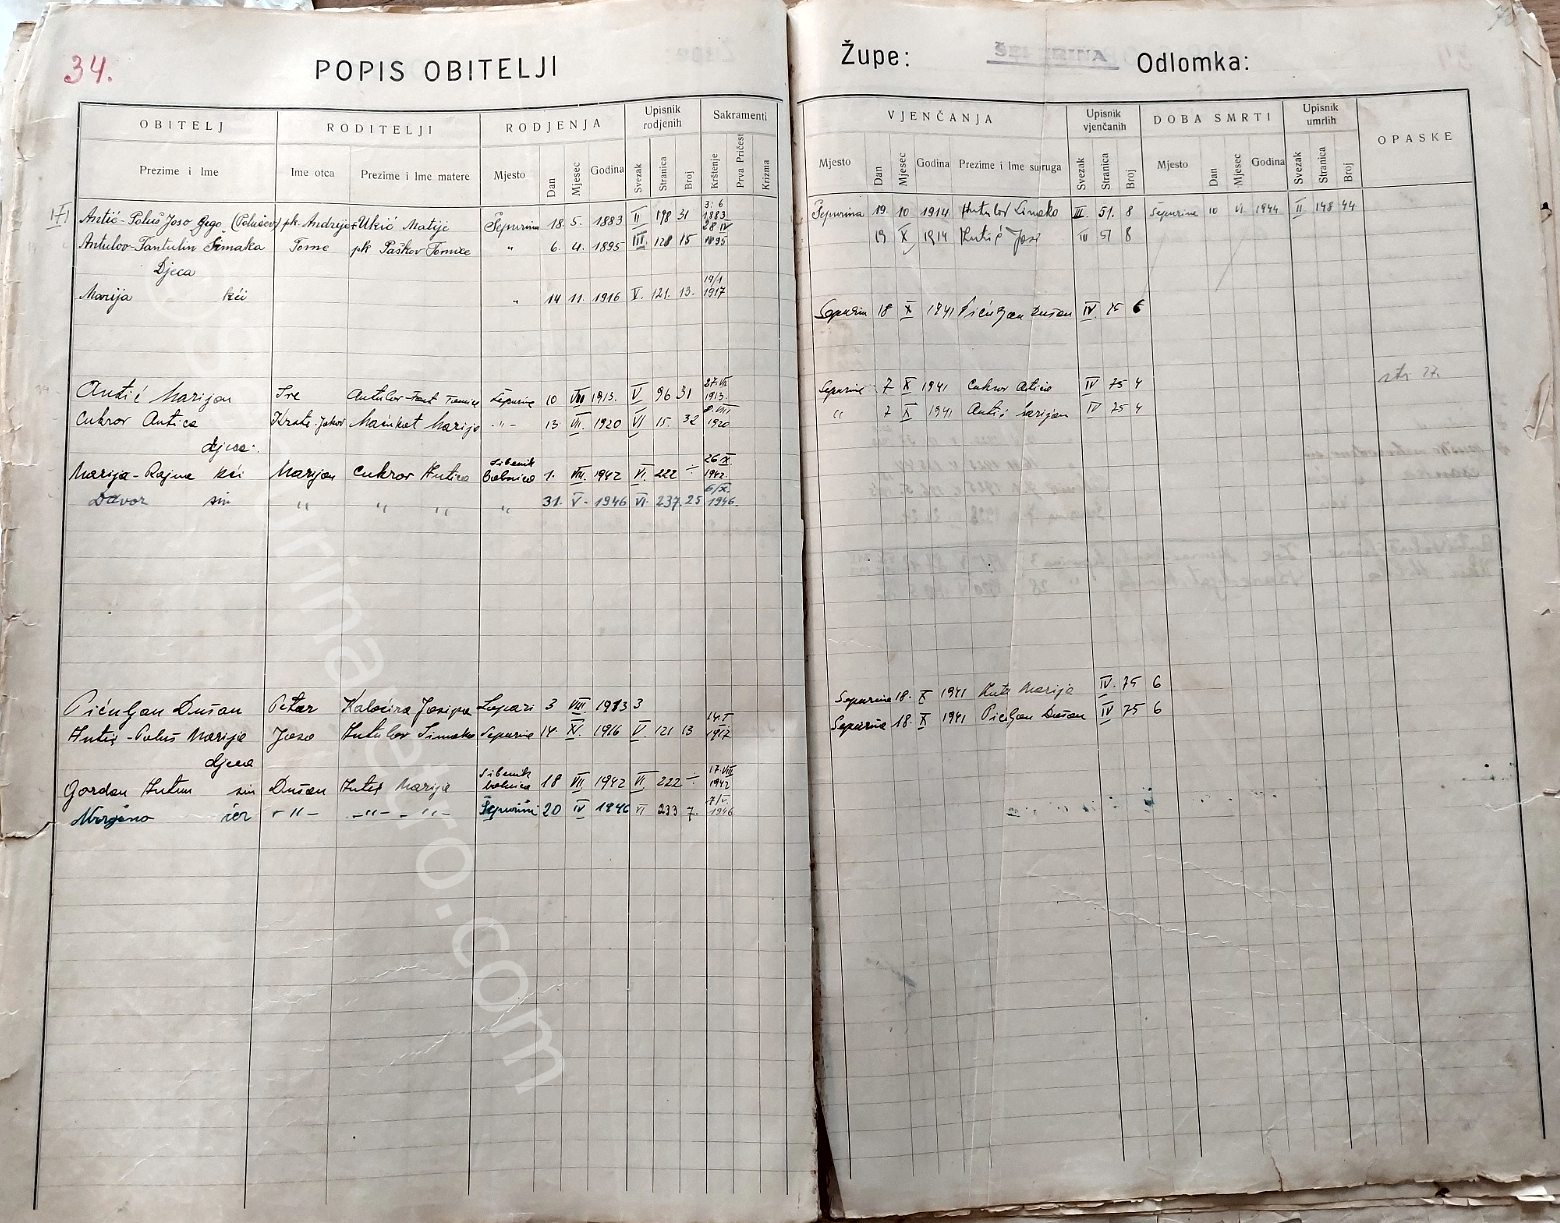 34.
POPIS OBITELJI
Župe: ŠEPURINA Odlomka:
OBITELJ RODITELJI RODJENJA Upisnik rodjenih Sakramenti
Prezime i Ime Ime otca Prezime i Ime matere Mjesto Dan Mjesec Godina Svezak Stranica Broj Krštenje Prva Pričest Krizma
VJENČANJA Upisnik vjenčanih DOBA SMRTI Upisnik umrlih OPASKE
Mjesto Dan Mjesec Godina Prezime i Ime supruga Svezak Stranica Broj Mjesto Dan Mjesec Godina Svezak Stranica Broj
Antić-Poluš Joso Grgo pk. Andrija Ukić Matije Šepurina 18. 5. 1883 II 178 31 3. 6 1883
Šepurina 19. 10 1914 Antulov Simaka III 51. 8 Šepurina 10 VI 1944 II 148 44
Antulov-Fantulin Simaka Tome pk Paškov Tomice " 6. 4. 1895 III 128 15 28 IV 1895
19 X 1914 Antić Joso III 51 8
Djeca
Marija kći " 14 11. 1916 V. 121. 13. 14/1 1917
Šepurin 18 X 1941 Pićuljan Dušan IV 75 6
Antić Marijan Ive Antulov-Fant Tomica Šepurina 10 VIII 1913. V 96 31 27. VIII 1913.
Šepurine 7 X 1941 Cukrov Antica IV 75 4 str 27.
Cukrov Antica Krste-Jakov Mainkat Marija -"- 13 VII. 1920 VI 15. 32 8. VIII 1920
" 7 X 1941 Antić Marijan IV 75 4
djeca:
Marija-Rajna kći Marijan Cukrov Antica Šibenik Bolnica 1. VIII. 1942 VI. 222 - 26 IX. 1942.
Davor sin " " " " 31. V. 1946 VI. 237. 25 6/X. 1946.
Pićuljan Dušan Petar Kaločira Josipa Lopari 3 VIII 1913 3
Šepurina 18. X 1941 Antić Marija IV. 75 6
Antić-Poluš Marija Joso Antulov Simaka Šepurina 14. XI. 1916 V 121 13 14 I 1917
Šepurina 18. X 1941 Pićuljan Dušan IV 75 6
djeca
Gordan Antun sin Dušan Antić Marija Šibenik bolnica 18 VII 1942 VI. 222 - 17. VIII 1942
kći -"- -"- -"- Šepurini 20 IV 1946 VI 233 7. 1946